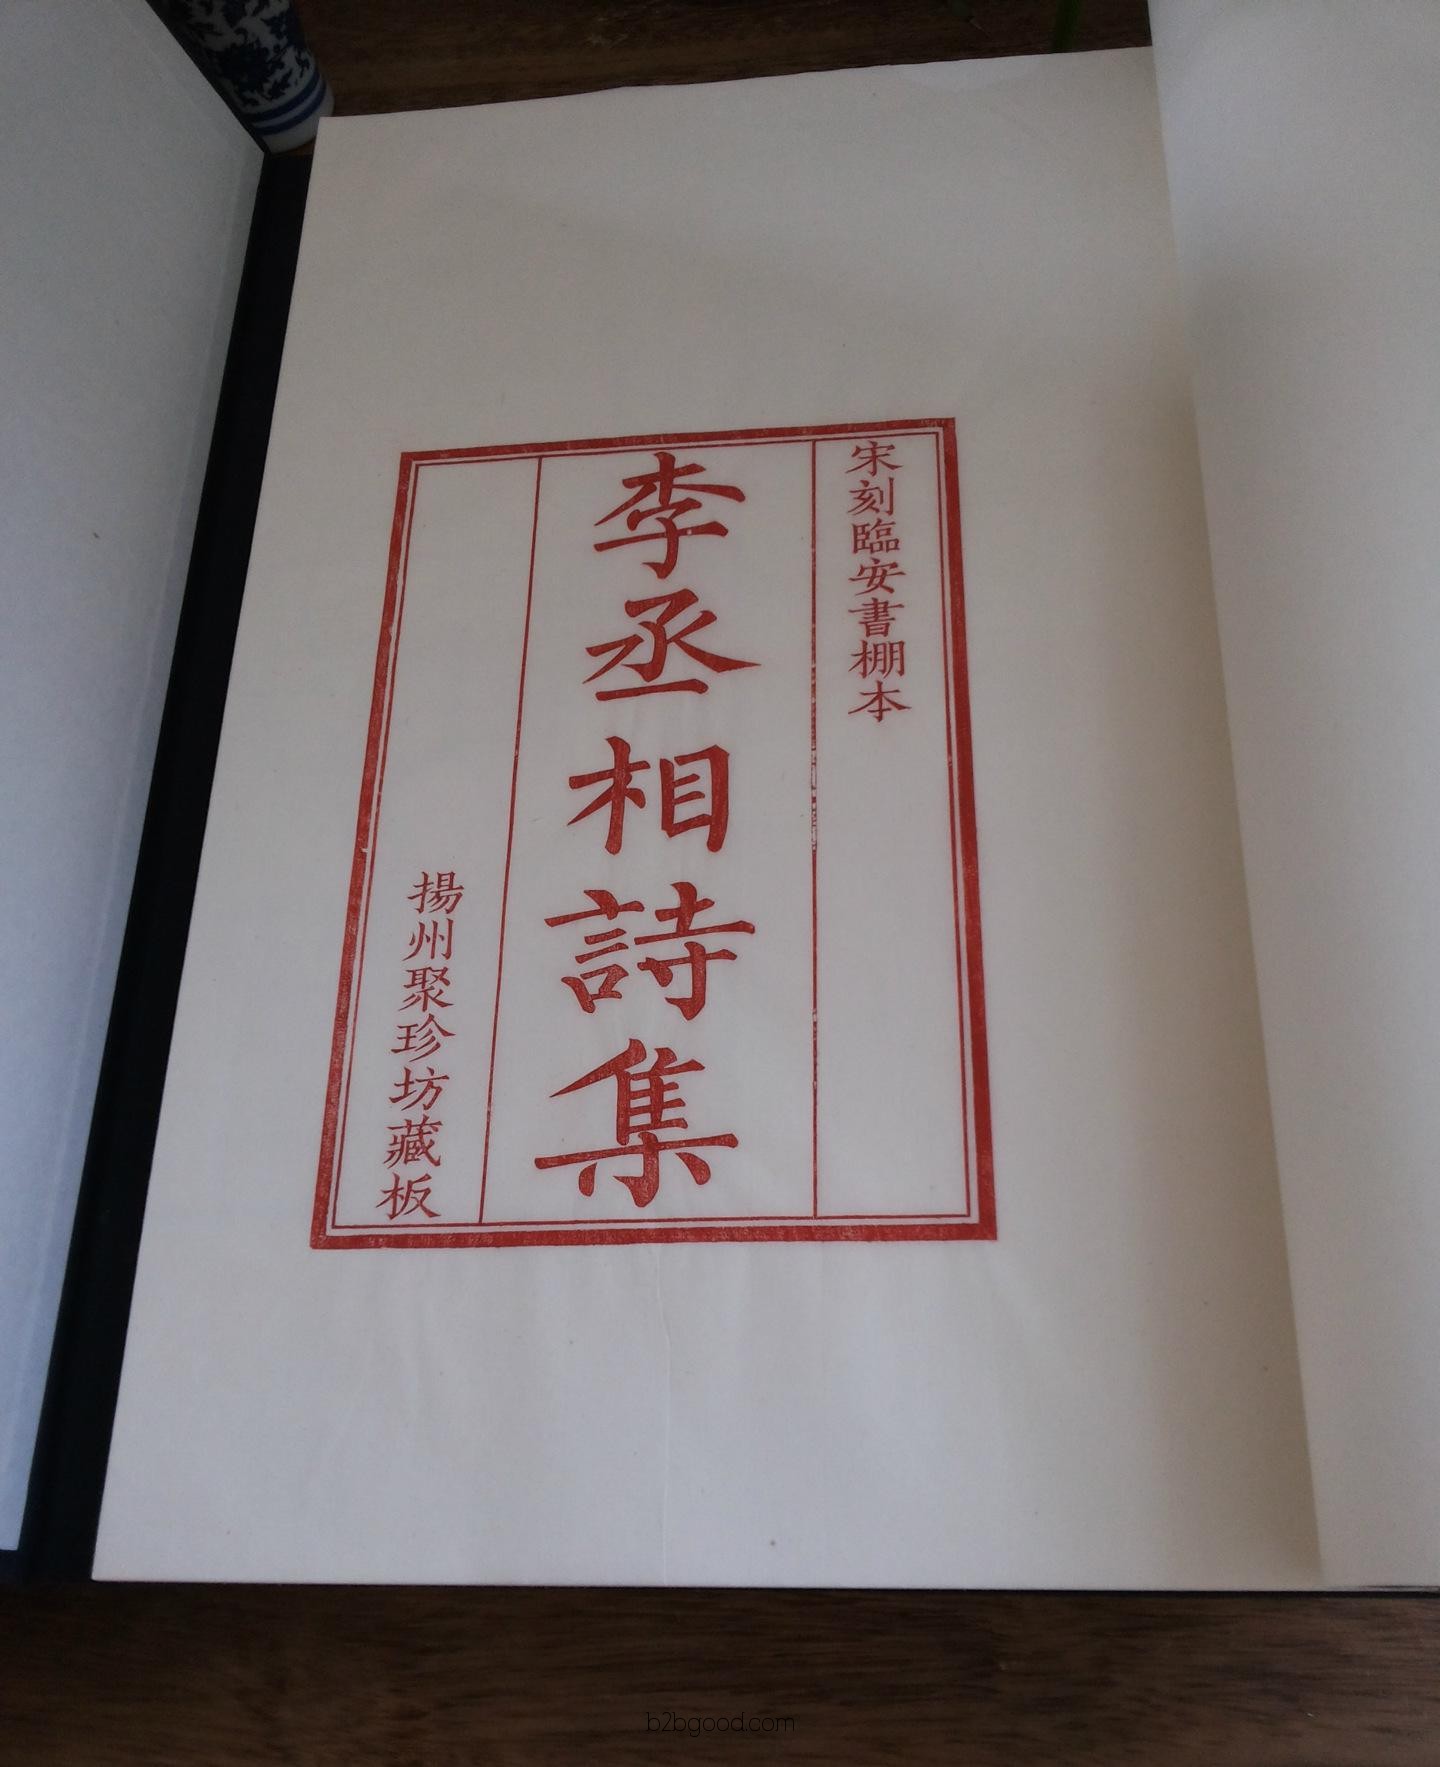 宋刻臨安書棚本
李丞相詩集
揚州聚珍坊藏板
b2bgood.com